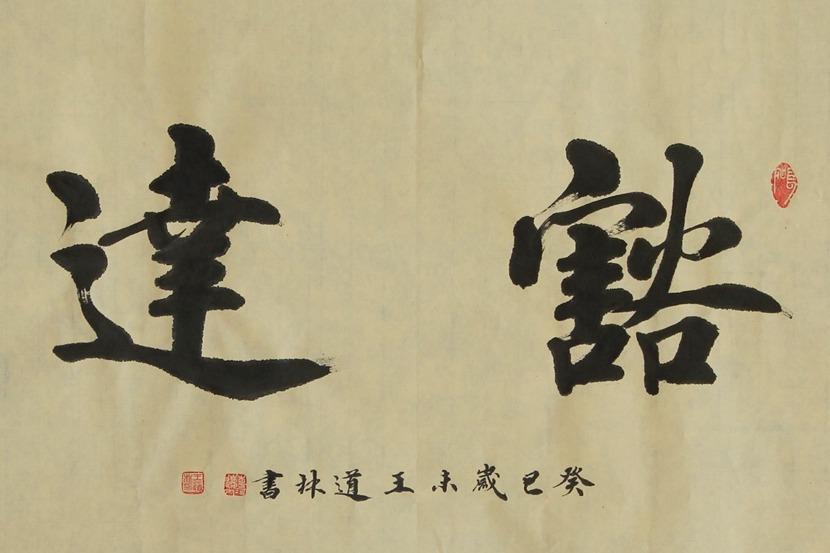 豁達
癸巳歲末王道林書